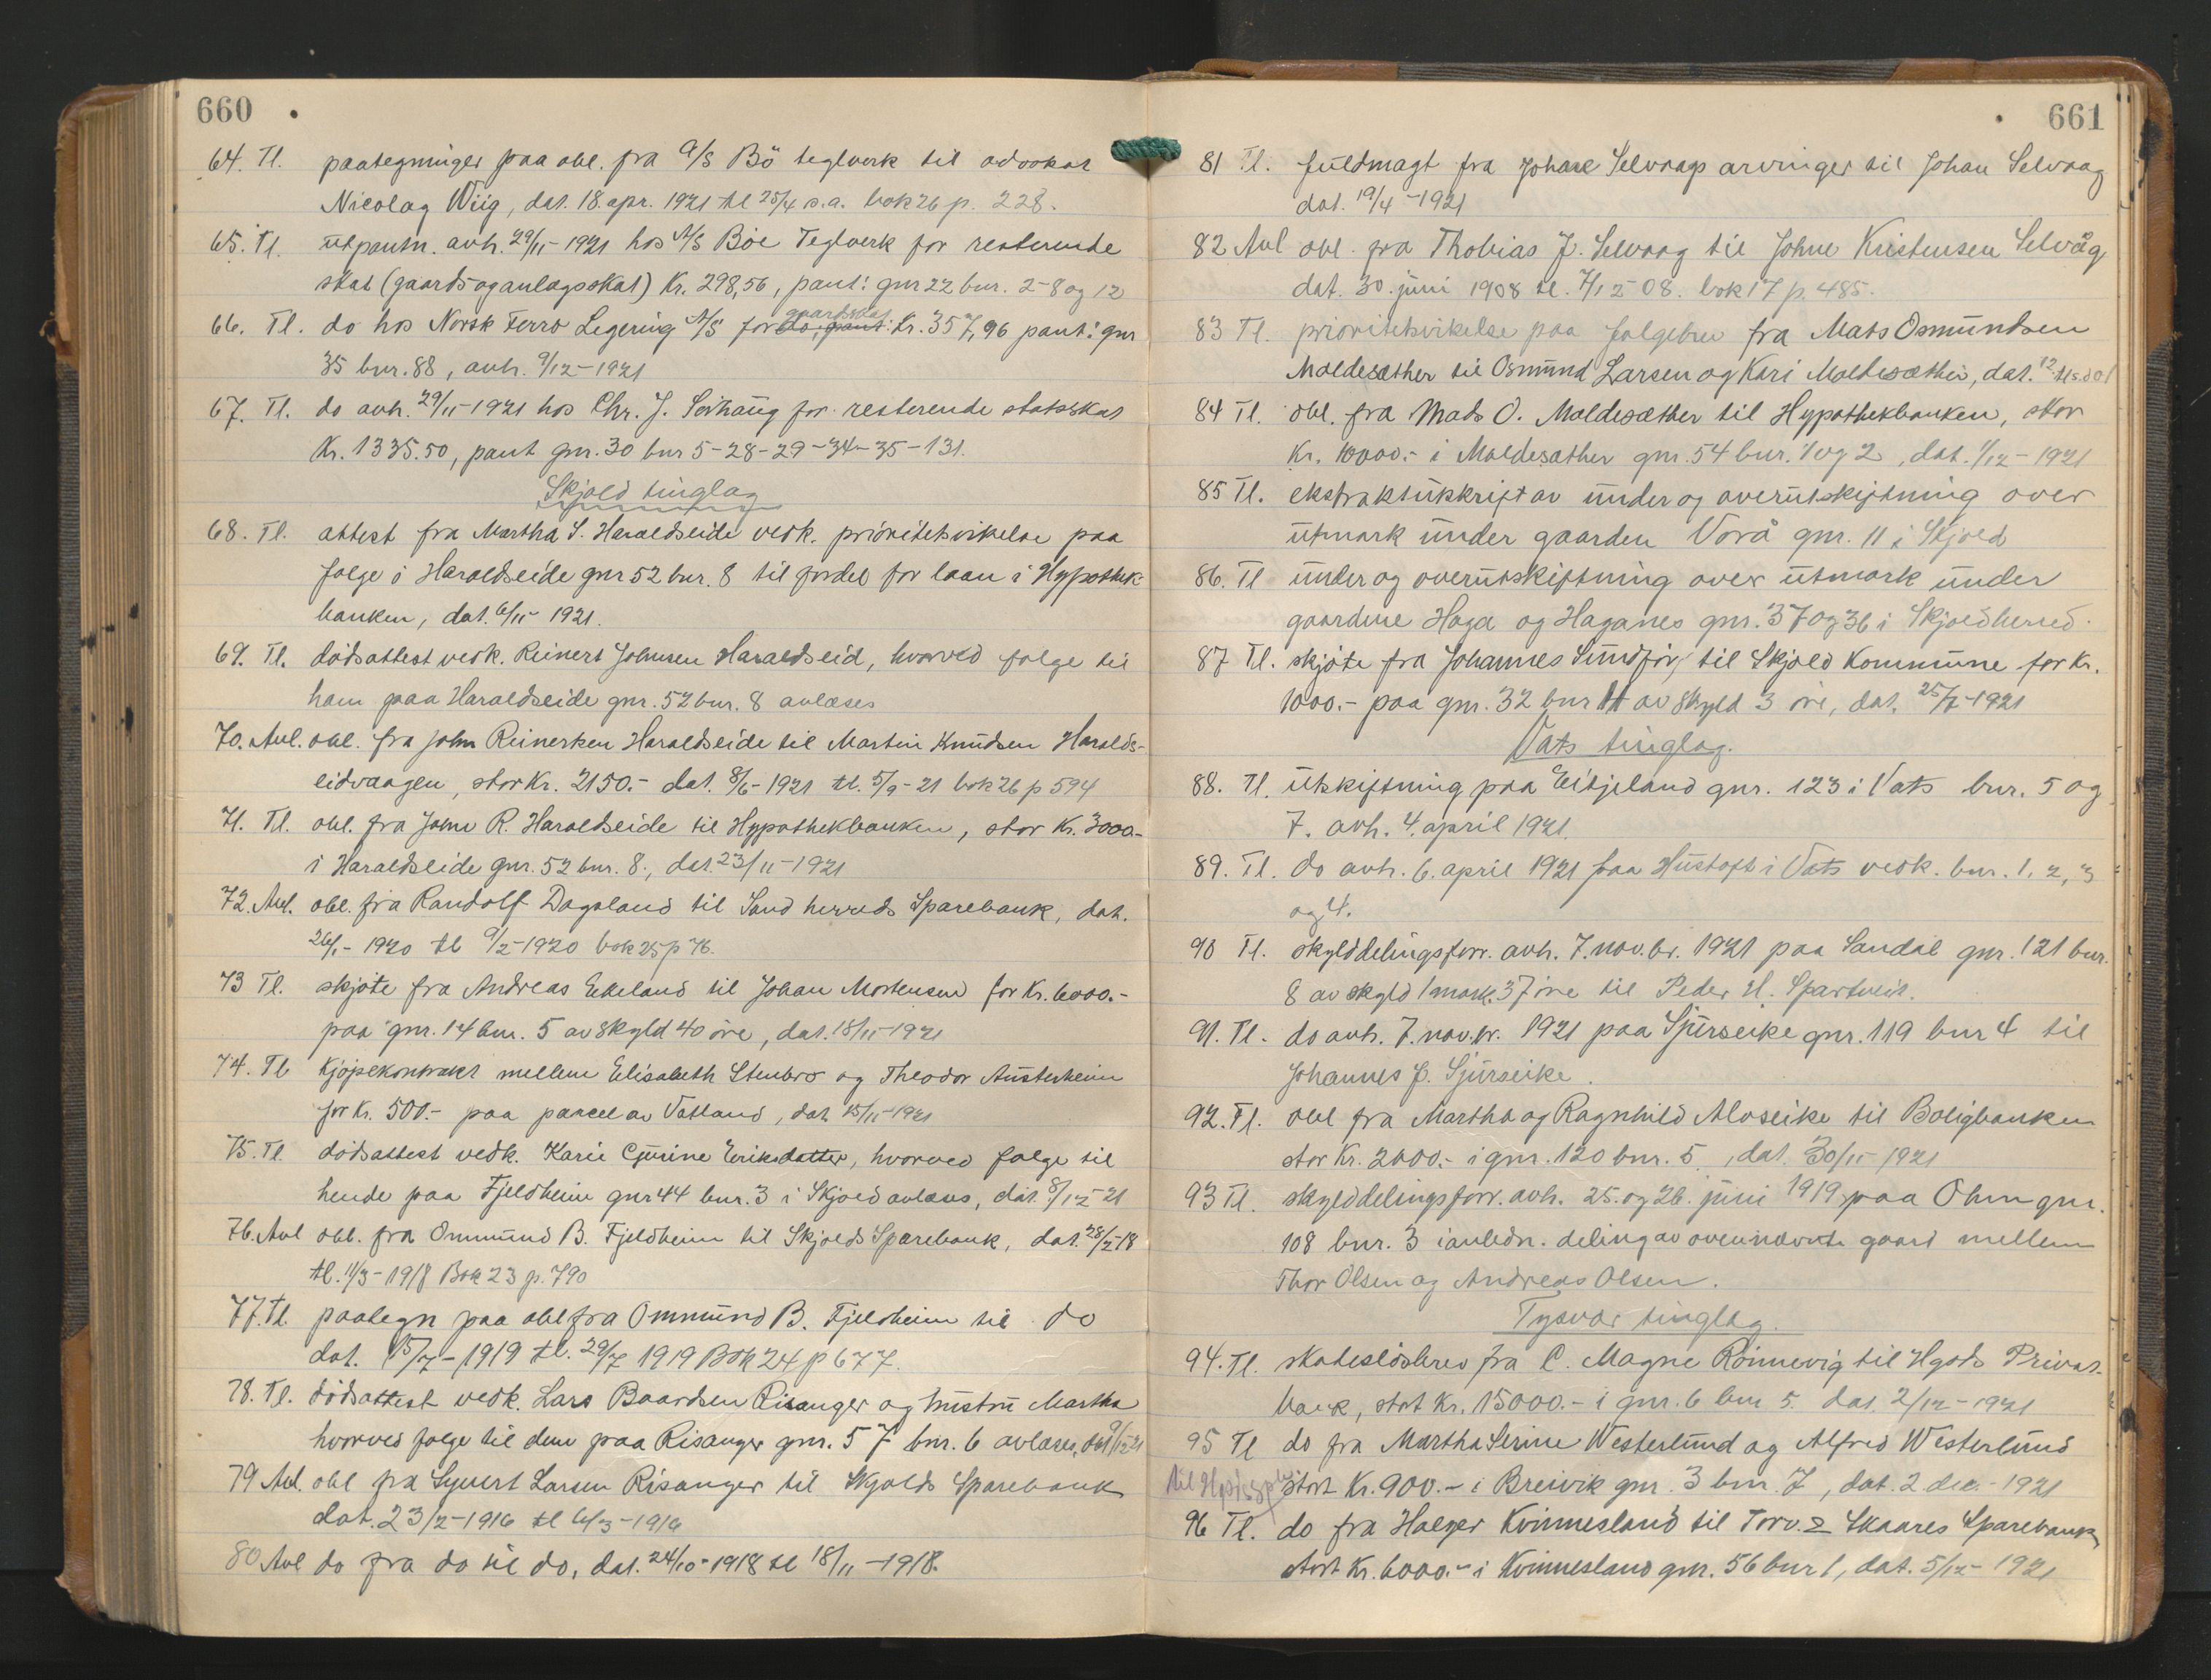 660
64. Tl. paategninger paa obl. fra A/S Bö teglverk til advokat
Nicolay Wiig, dat. 18. apr. 1921 tl 25/4 s.a. bok 26 p. 228.
65. Tl. utpantn. avh. 29/11-1921 hos A/S Böe Teglverk for resterende
skat (gaards og anlagsskat) Kr. 298,56, pant: gnr 22 bnr. 2-8 og 12
66. Tl. do hos Norsk Ferro Legering A/S for gaardsskat do, pant: Kr. 357,96 pant: gnr
35 bnr. 88, avh. 9/12-1921
67. Tl. do avh. 29/11-1921 hos Chr. J. Sörhaug for resterende statsskat
Kr. 1335.50, pant gnr. 30 bnr 5-28-29-34-35-131.
Skjold tinglag
68. Tl. attest fra Martha S. Haraldseide vedk. prioritetsvikelse paa
folge i Haraldseide gnr 52 bnr. 8 til fordel for laan i Hypothek-
banken, dat. 6/11-1921.
69. Tl. dödsattest vedk. Reinert Johnsen Haraldseid, hvorved folge til
ham paa Haraldseide gnr. 52 bnr. 8 avlæses
70. Avl. obl. fra John Reinertsen Haraldseide til Martin Knudsen Haralds-
eidvaagen, stor Kr. 2150.- dat. 8/6-1921 tl. 5/9-21 bok 26 p 594
71. Tl. obl. fra John R. Haraldseide til Hypothekbanken, stor Kr. 3000.-
i Haraldseide gnr. 52 bnr. 8., dat. 23/11-1921
72. Avl. obl. fra Randolf Dagsland til Sand herreds Sparebank, dat.
26/1-1920 tl 9/2-1920 bok 25 p 76.
73 Tl. skjöte fra Andreas Eikeland til Johan Mortensen for Kr. 6000.-
paa gnr. 14 bnr. 5 av skyld 40 öre, dat. 18/11-1921
74. Tl Kjöpekontrakt mellem Elisabeth Stenbro og Theodor Austerheim
for Kr. 500.- paa parcel av Vatland, dat 15/11-1921
75. Tl. dödsattest vedk. Karie Gurine Eriksdatter, hvorved folge til
hende paa Fjeldheim gnr 44 bnr. 3 i Skjold avlæses, dat. 8/12-21
76. Avl obl. fra Ommund B. Fjeldheim til Skjolds Sparebank, dat. 28/2-18
tl. 11/3-1918 Bok 23 p. 790
77. Tl. paategn paa obl fra Ommund B. Fjeldheim til do
dat. 15/7-1919 tl. 29/7 1919 Bok 24 p 677.
78. Tl. dödsattest vedk. Lars Baardsen Risanger og hustru Martha
hvorved folge til dem paa Risanger gnr. 57 bnr. 6 avlæses, dat 9/12 21
79 Avl. obl fra Syvert Larsen Risanger til Skjolds Sparebank
dat. 23/2-1916 tl 6/3-1916
80 Avl do fra do til do, dat. 24/10-1918 tl 18/11-1918.
661
81 Tl. fuldmagt fra Johan Selvaags arvinger til Johan Selvaag
dat. 19/4-1921
82 Avl obl. fra Thobias J. Selvaag til Johne Kristensen Selvåg
dat. 30. juni 1908 tl. 7/12-08. bok 17 p. 485.
83 Tl. prioritetsvikelse paa folgebrev fra Mats Osmundsen
Moldesæther til Osmund Larsen og Kari Moldesæther, dat.
84 Tl. obl. fra Mads O. Moldesæther til Hypothekbanken, stor
Kr. 10000.- i Moldesæther gnr. 54 bnr. 1 og 2, dat. 1/12-1921
85 Tl. ekstraktutskrift av under og overutskiftning over
utmark under gaarden Vorå gnr. 11 i Skjold
86. Tl under og overutskiftning over utmark under
gaardene Haga og Haganes gnr. 37 og 36 i Skjold herred.
87 Tl. skjöte fra Johannes Sundför, til Skjold Kommune for Kr.
1000.- paa gnr. 32 bnr 11 av skyld 3 öre, dat. 25/7-1921
Vats tinglag.
88. Tl. utskiftning paa Eikjeland gnr. 123 i Vats bnr. 5 og
7. avh. 4. april 1921.
89. Tl. do avh. 6. april 1921 paa Hustoft i Vats vedk. bnr. 1, 2, 3
og 4.
90 Tl. skylddelingsforr. avh. 7. nov. br. 1921 paa Sandal gnr. 121 bnr.
8 av skyld 1 mark 37 öre til Peder El. Spartveit.
91. Tl. do avh. 7. nov. br. 1921 paa Sjurseike gnr. 119 bnr 4 til
Johannes J. Sjurseike.
92. Tl. obl fra Martha og Ragnhild Alvseike til Boligbanken
stor Kr. 2000.- i gnr. 120 bnr. 5, dat. 30/11-1921
93 Tl. skylddelingsforr. avh. 25. og 26. juni 1919 paa Ohm gnr.
108 bnr. 3 i anledn. deling av ovennævnte gaard mellem
Thor Olsen og Andreas Olsen.
Tysvær tinglag.
94. Tl. skadeslösbrev fra C. Magne Rönnevig til Hgsds Privat-
bank, stort Kr. 15000.- i gnr. 6 bnr 5. dat. 2/12-1921
95 Tl do fra Martha Serine Westerlund og Alfred Westerlund
stort Kr. 900.- i Breivik gnr. 3 bnr. 7, dat. 2 dec. 1921
96 Tl. do fra Holger Kvinnesland til Torv. & Skaares Sparebank
stort Kr. 6000.- i Kvinnesland gnr. 56 bnr 1, dat. 5/12-1921